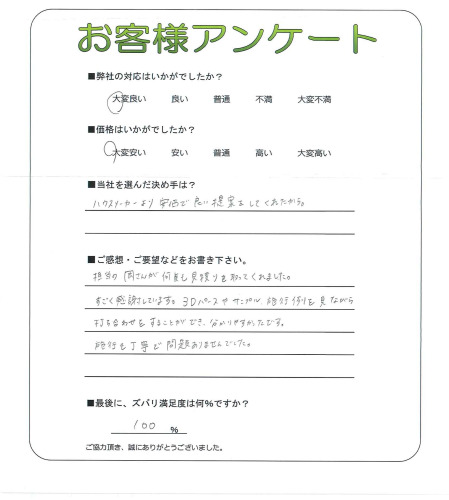 お客様アンケート
■弊社の対応はいかがでしたか？
大変良い 良い 普通 不満 大変不満
■価格はいかがでしたか？
大変安い 安い 普通 高い 大変高い
■当社を選んだ決め手は？
ハウスメーカーより安価で良い提案をしてくれたから。
■ご感想・ご要望などをお書き下さい。
担当の岡さんが何度も見積りを取ってくれました。
すごく感謝しています。3Dパースやサンプル施行例を見ながら
打ち合わせをすることができ、分かりやすかったです。
施行も丁寧で問題ありませんでした。
■最後に、ズバリ満足度は何%ですか？
100 %
ご協力頂き、誠にありがとうございました。